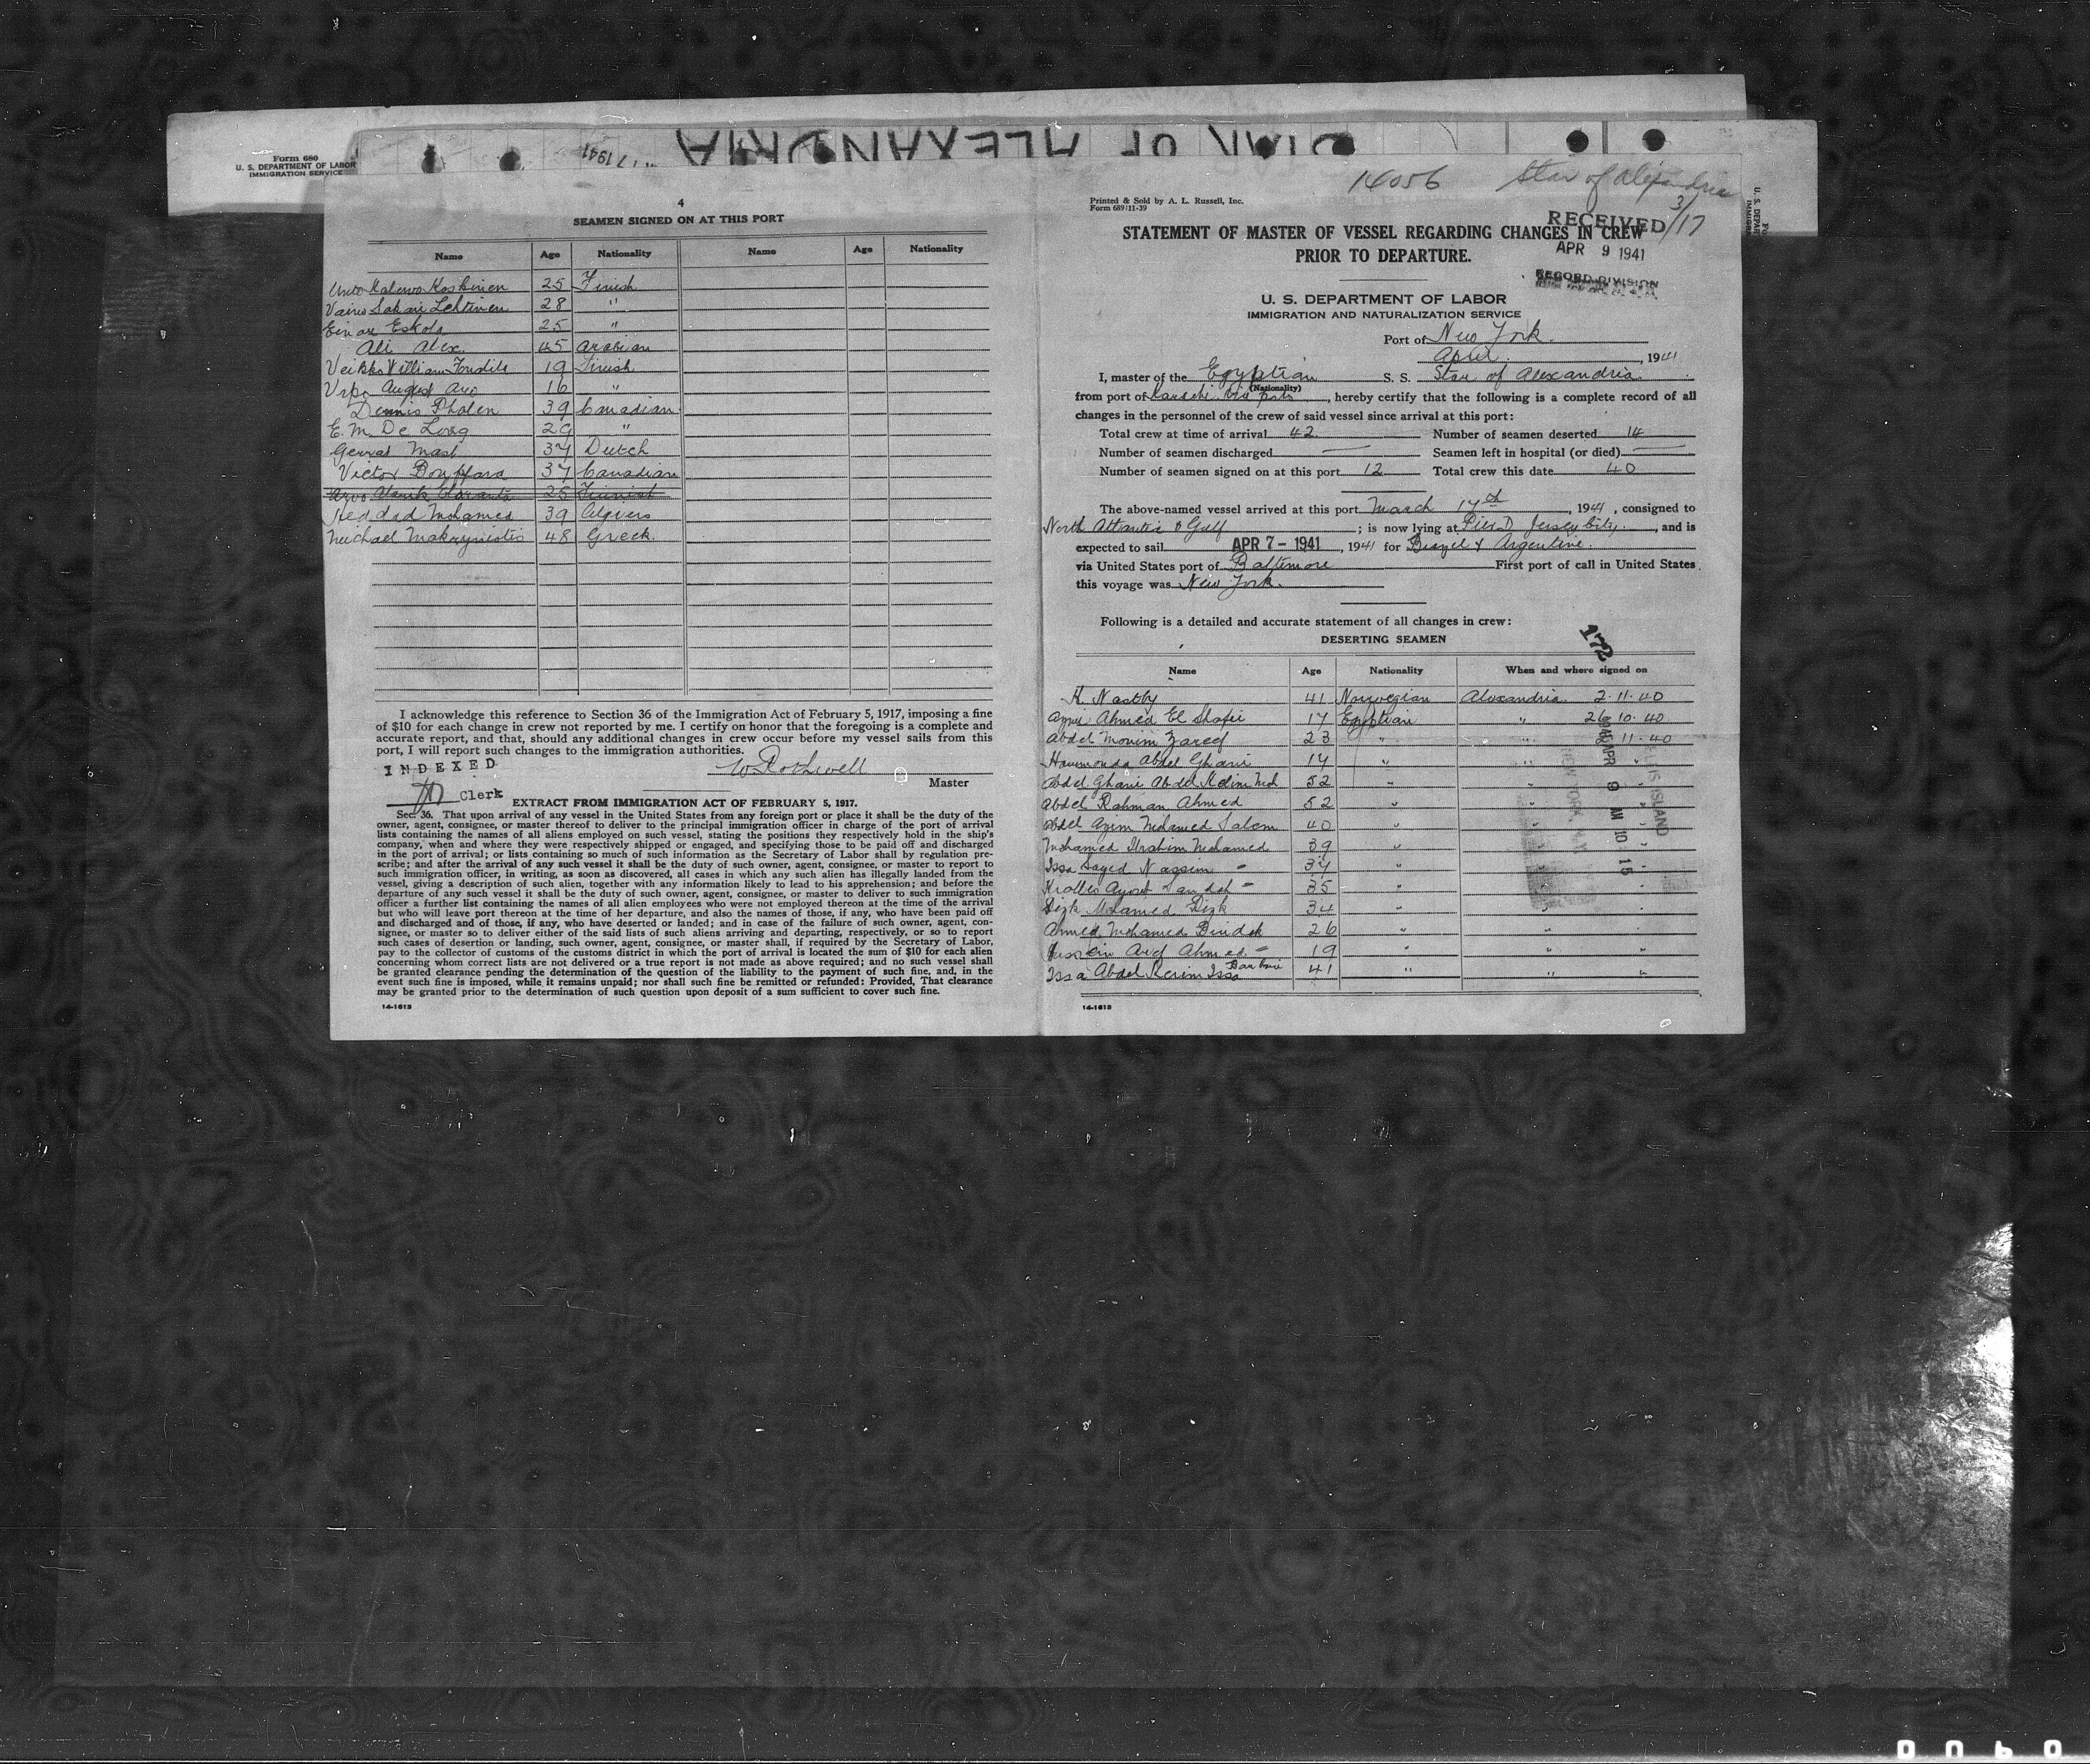 Form 680
U. S. DEPARTMENT OF LABOR
IMMIGRATION SERVICE
STAR OF ALEXANDRIA
7 1941
4
SEAMEN SIGNED ON AT THIS PORT
Name Age Nationality Name Age Nationality
Koskinen 25 Finish
Lehtinen 28 "
Einar Eskola 25 "
Ali Alex. 45 Arabian
Veikko William 19 Finish
August 16 "
Dennis Phalen 39 Canadian
E. M. De Long 29 "
Mast 37 Dutch
Victor 37 Canadian
25 Finnish
Mohamed 39
Michael 48 Greek.
I acknowledge this reference to Section 36 of the Immigration Act of February 5, 1917, imposing a fine
of $10 for each change in crew not reported by me. I certify on honor that the foregoing is a complete and
accurate report, and that, should any additional changes in crew occur before my vessel sails from this
port, I will report such changes to the immigration authorities.
INDEXED
W Rothwell
Master
Clerk
EXTRACT FROM IMMIGRATION ACT OF FEBRUARY 5, 1917.
Sec. 36. That upon arrival of any vessel in the United States from any foreign port or place it shall be the duty of the
owner, agent, consignee, or master thereof to deliver to the principal immigration officer in charge of the port of arrival
lists containing the names of all aliens employed on such vessel, stating the positions they respectively hold in the ship's
company, when and where they were respectively shipped or engaged, and specifying those to be paid off and discharged
in the port of arrival; or lists containing so much of such information as the Secretary of Labor shall by regulation pre-
scribe; and after the arrival of any such vessel it shall be the duty of such owner, agent, consignee, or master to report to
such immigration officer, in writing, as soon as discovered, all cases in which any such alien has illegally landed from the
vessel, giving a description of such alien, together with any information likely to lead to his apprehension; and before the
departure of any such vessel it shall be the duty of such owner, agent, consignee, or master to deliver to such immigration
officer a further list containing the names of all alien employees who were not employed thereon at the time of the arrival
but who will leave port thereon at the time of her departure, and also the names of those, if any, who have been paid off
and discharged and of those, if any, who have deserted or landed; and in case of the failure of such owner, agent, con-
signee, or master so to deliver either of the said lists of such aliens arriving and departing, respectively, or so to report
such cases of desertion or landing, such owner, agent, consignee, or master shall, if required by the Secretary of Labor,
pay to the collector of customs of the customs district in which the port of arrival is located the sum of $10 for each alien
concerning whom correct lists are not delivered or a true report is not made as above required; and no such vessel shall
be granted clearance pending the determination of the question of the liability to the payment of such fine, and, in the
event such fine is imposed, while it remains unpaid; nor shall such fine be remitted or refunded: Provided, That clearance
may be granted prior to the determination of such question upon deposit of a sum sufficient to cover such fine.
14-1613
14056 Star of Alexandria
3/17
Printed & Sold by A. L. Russell, Inc.
Form 689:11-39
RECEIVED
STATEMENT OF MASTER OF VESSEL REGARDING CHANGES IN CREW
PRIOR TO DEPARTURE.
APR 9 1941
RECORD DIVISION
U. S. DEPARTMENT OF LABOR
IMMIGRATION AND NATURALIZATION SERVICE
Port of New York.
April, 1941
I, master of the Egyptian S. S. Star of Alexandria.
(Nationality)
from port of Karachi via ports, hereby certify that the following is a complete record of all
changes in the personnel of the crew of said vessel since arrival at this port:
Total crew at time of arrival 42 Number of seamen deserted 14
Number of seamen discharged — Seamen left in hospital (or died) —
Number of seamen signed on at this port 12 Total crew this date 40
The above-named vessel arrived at this port March 17th, 1941, consigned to
North Atlantic & Gulf; is now lying at Pier D Jersey City., and is
expected to sail APR 7 - 1941, 1941 for Brazil & Argentine.
via United States port of Baltimore First port of call in United States
this voyage was New York.
Following is a detailed and accurate statement of all changes in crew:
DESERTING SEAMEN
172
Name Age Nationality When and where signed on
H. Nastby 41 Norwegian Alexandria 2.11.40
Ahmed El Shafei 17 Egyptian " 26.10.40
Abdel Monim Zareef 23 " " 2.11.40
Hammonda Abdel Ghani 17 " " "
Abdel Ghani Abdel 52 " " "
Abdel Rahman Ahmed 52 " " "
Abdel Azim Mohamed Salem 40 " " "
Mohamed Ibrahim Mohamed 39 " " "
Issa Sayed Nassim 37 " " "
35 " " "
Mohamed 34 " " "
Ahmed Mohamed 26 " " "
Hussein Aref Ahmed 19 " " "
Issa Abdel Kerim Issa 41 " " "
1941 APR 9 AM 10 15
ELLIS ISLAND
NEW YORK
14-1613